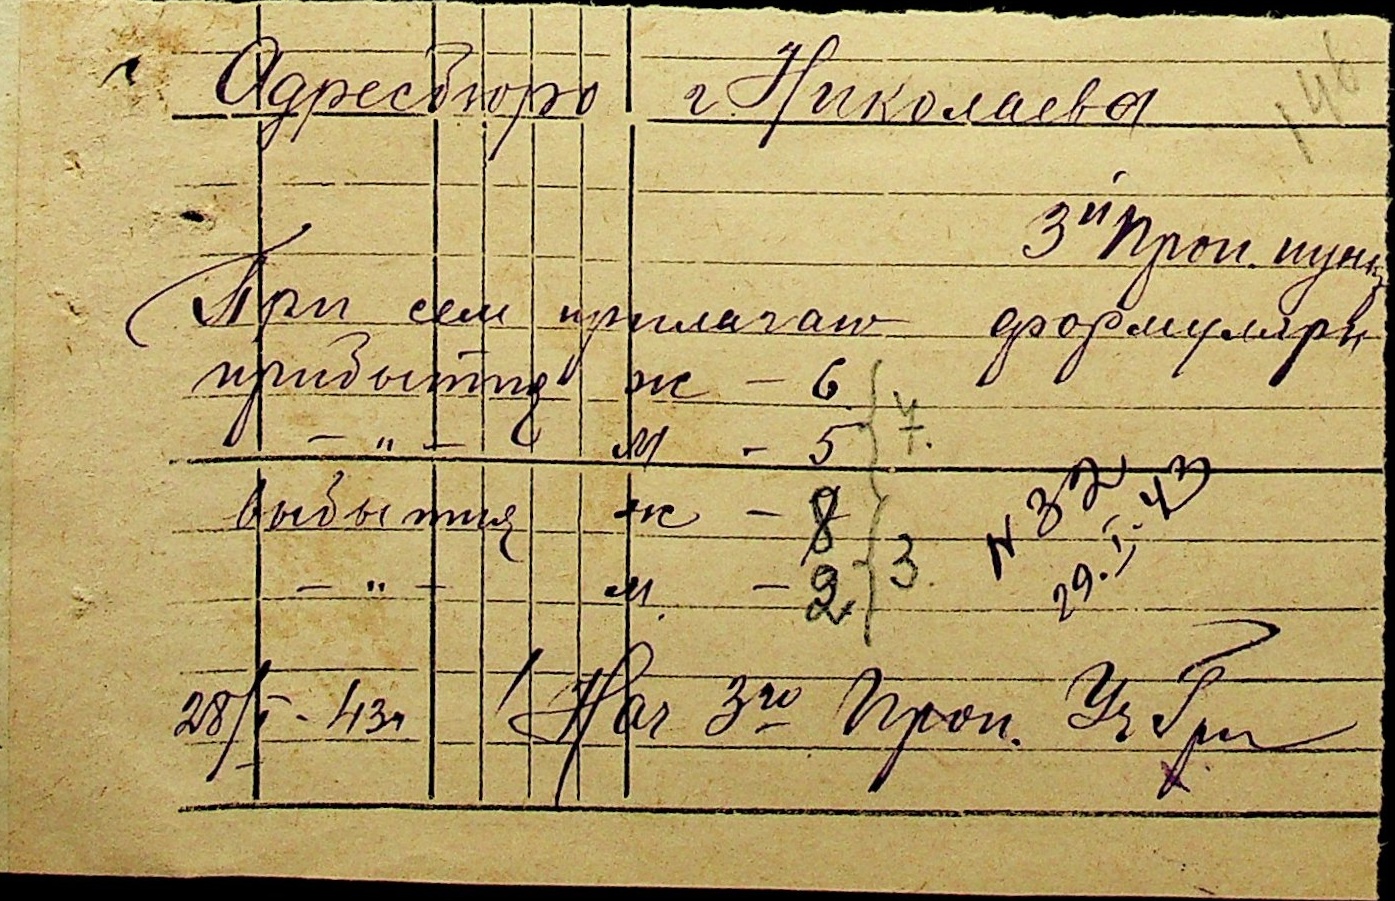 146
Адресбюро г. Николаева
3й Проп. пунк
При сем прилагаю формуляры
прибытия ж – 6
– " – м – 5
7.
выбытия ж – 8
– " – м. – 2
3.
N 32
29.I.43
28/I - 43г Нач 3го Проп. Уч